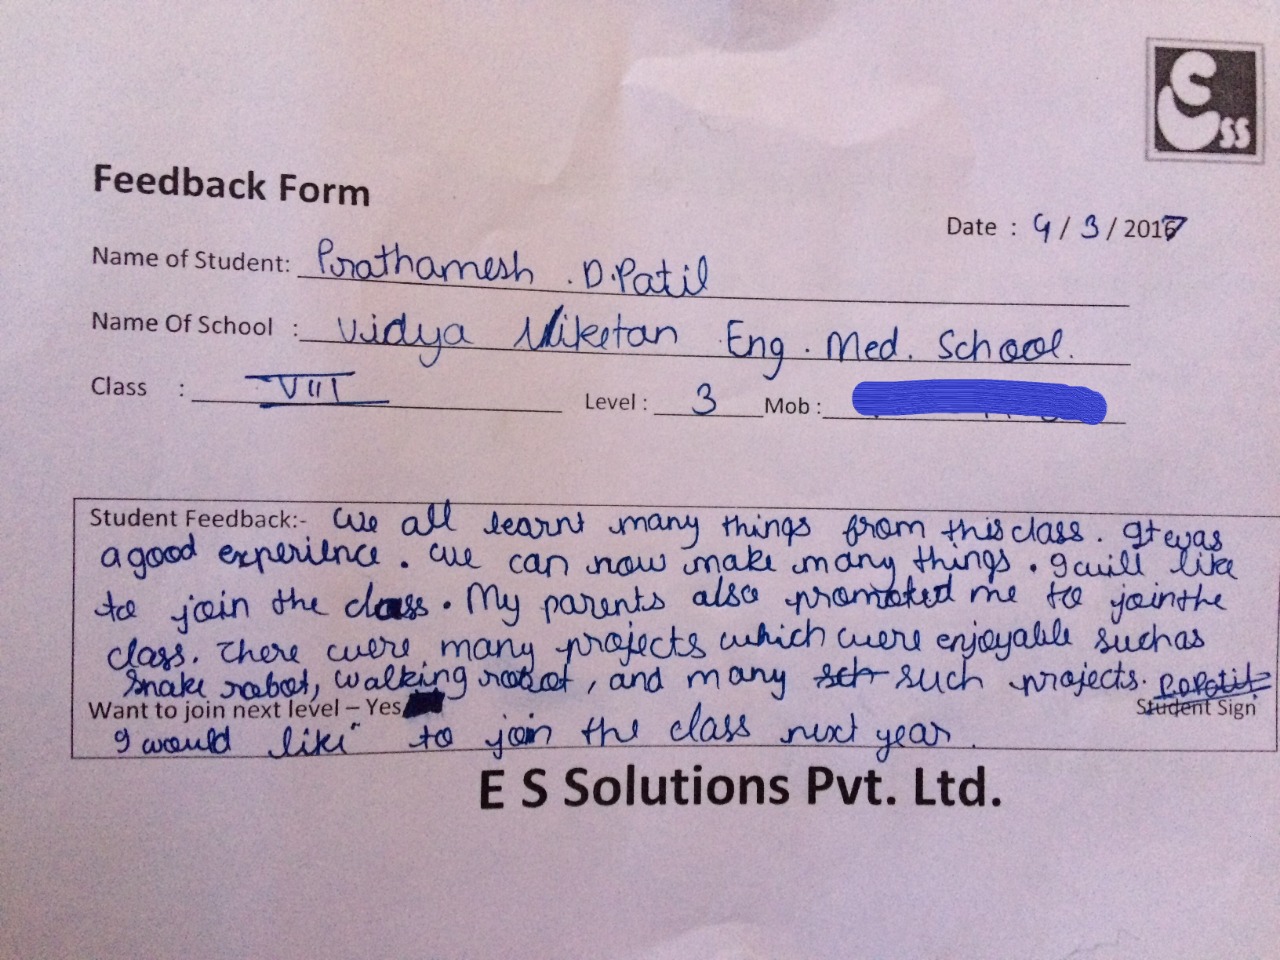 ESS
Feedback Form
Date : 9 / 3 / 2017
Name of Student: Prathamesh .D.Patil
Name Of School : Vidya Niketan Eng. Med. School.
Class : VIII Level : 3 Mob :
Student Feedback:- We all learnt many things from this class. It was
a good experience. We can now make many things. I will like
to join the class. My parents also promoted me to join the
class. There were many projects which were enjoyable such as
snake robot, walking robot, and many such projects. P.D.Patil
Want to join next level – Yes Student Sign
I would like to join the class next year.
E S Solutions Pvt. Ltd.